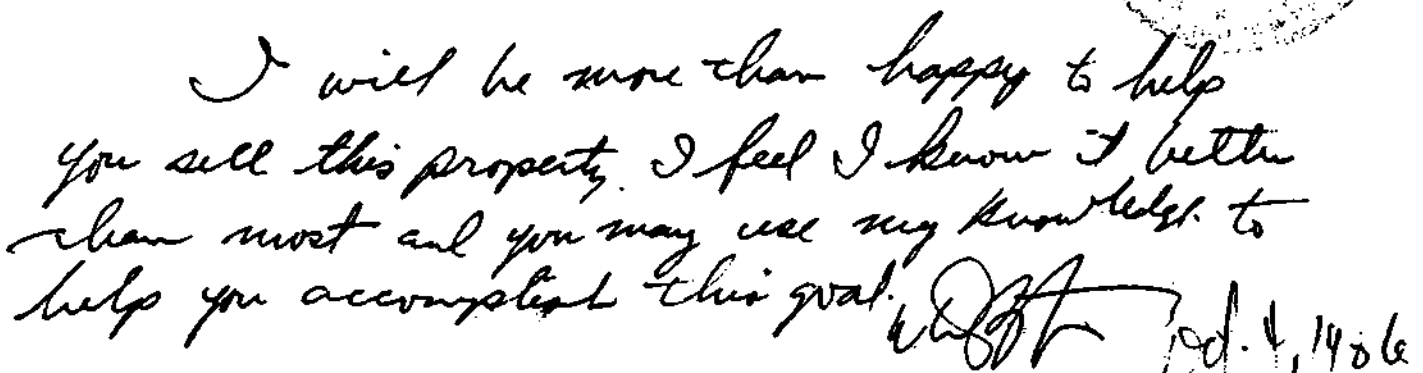 I will be more than happy to help
you sell this property. I feel I know it better
than most and you may use my knowledge to
help you accomplish this goal.